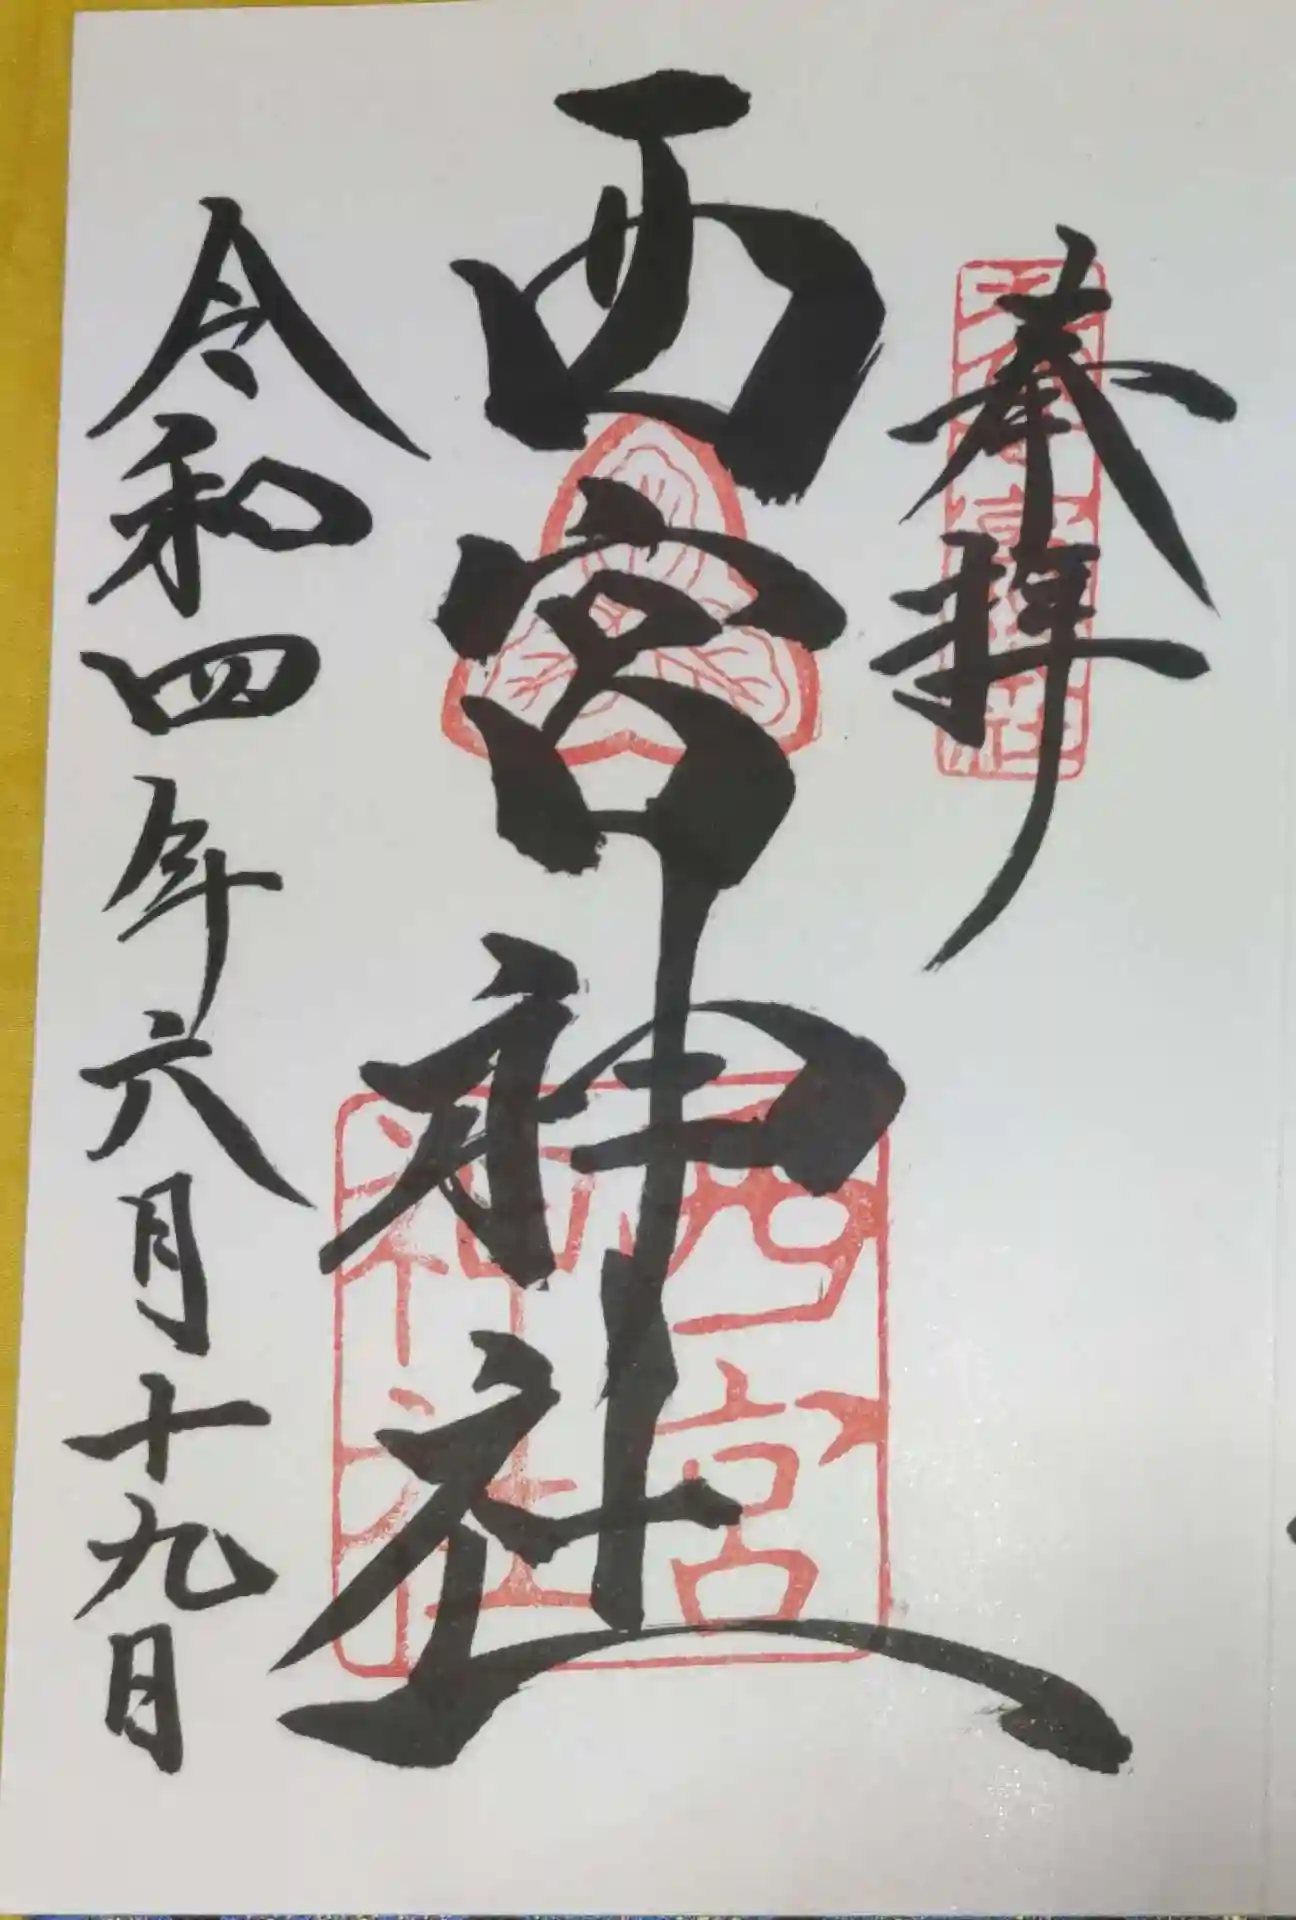 奉拝
西宮神社
西宮
神社
令和四年六月十九日